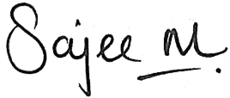 Sajee M.